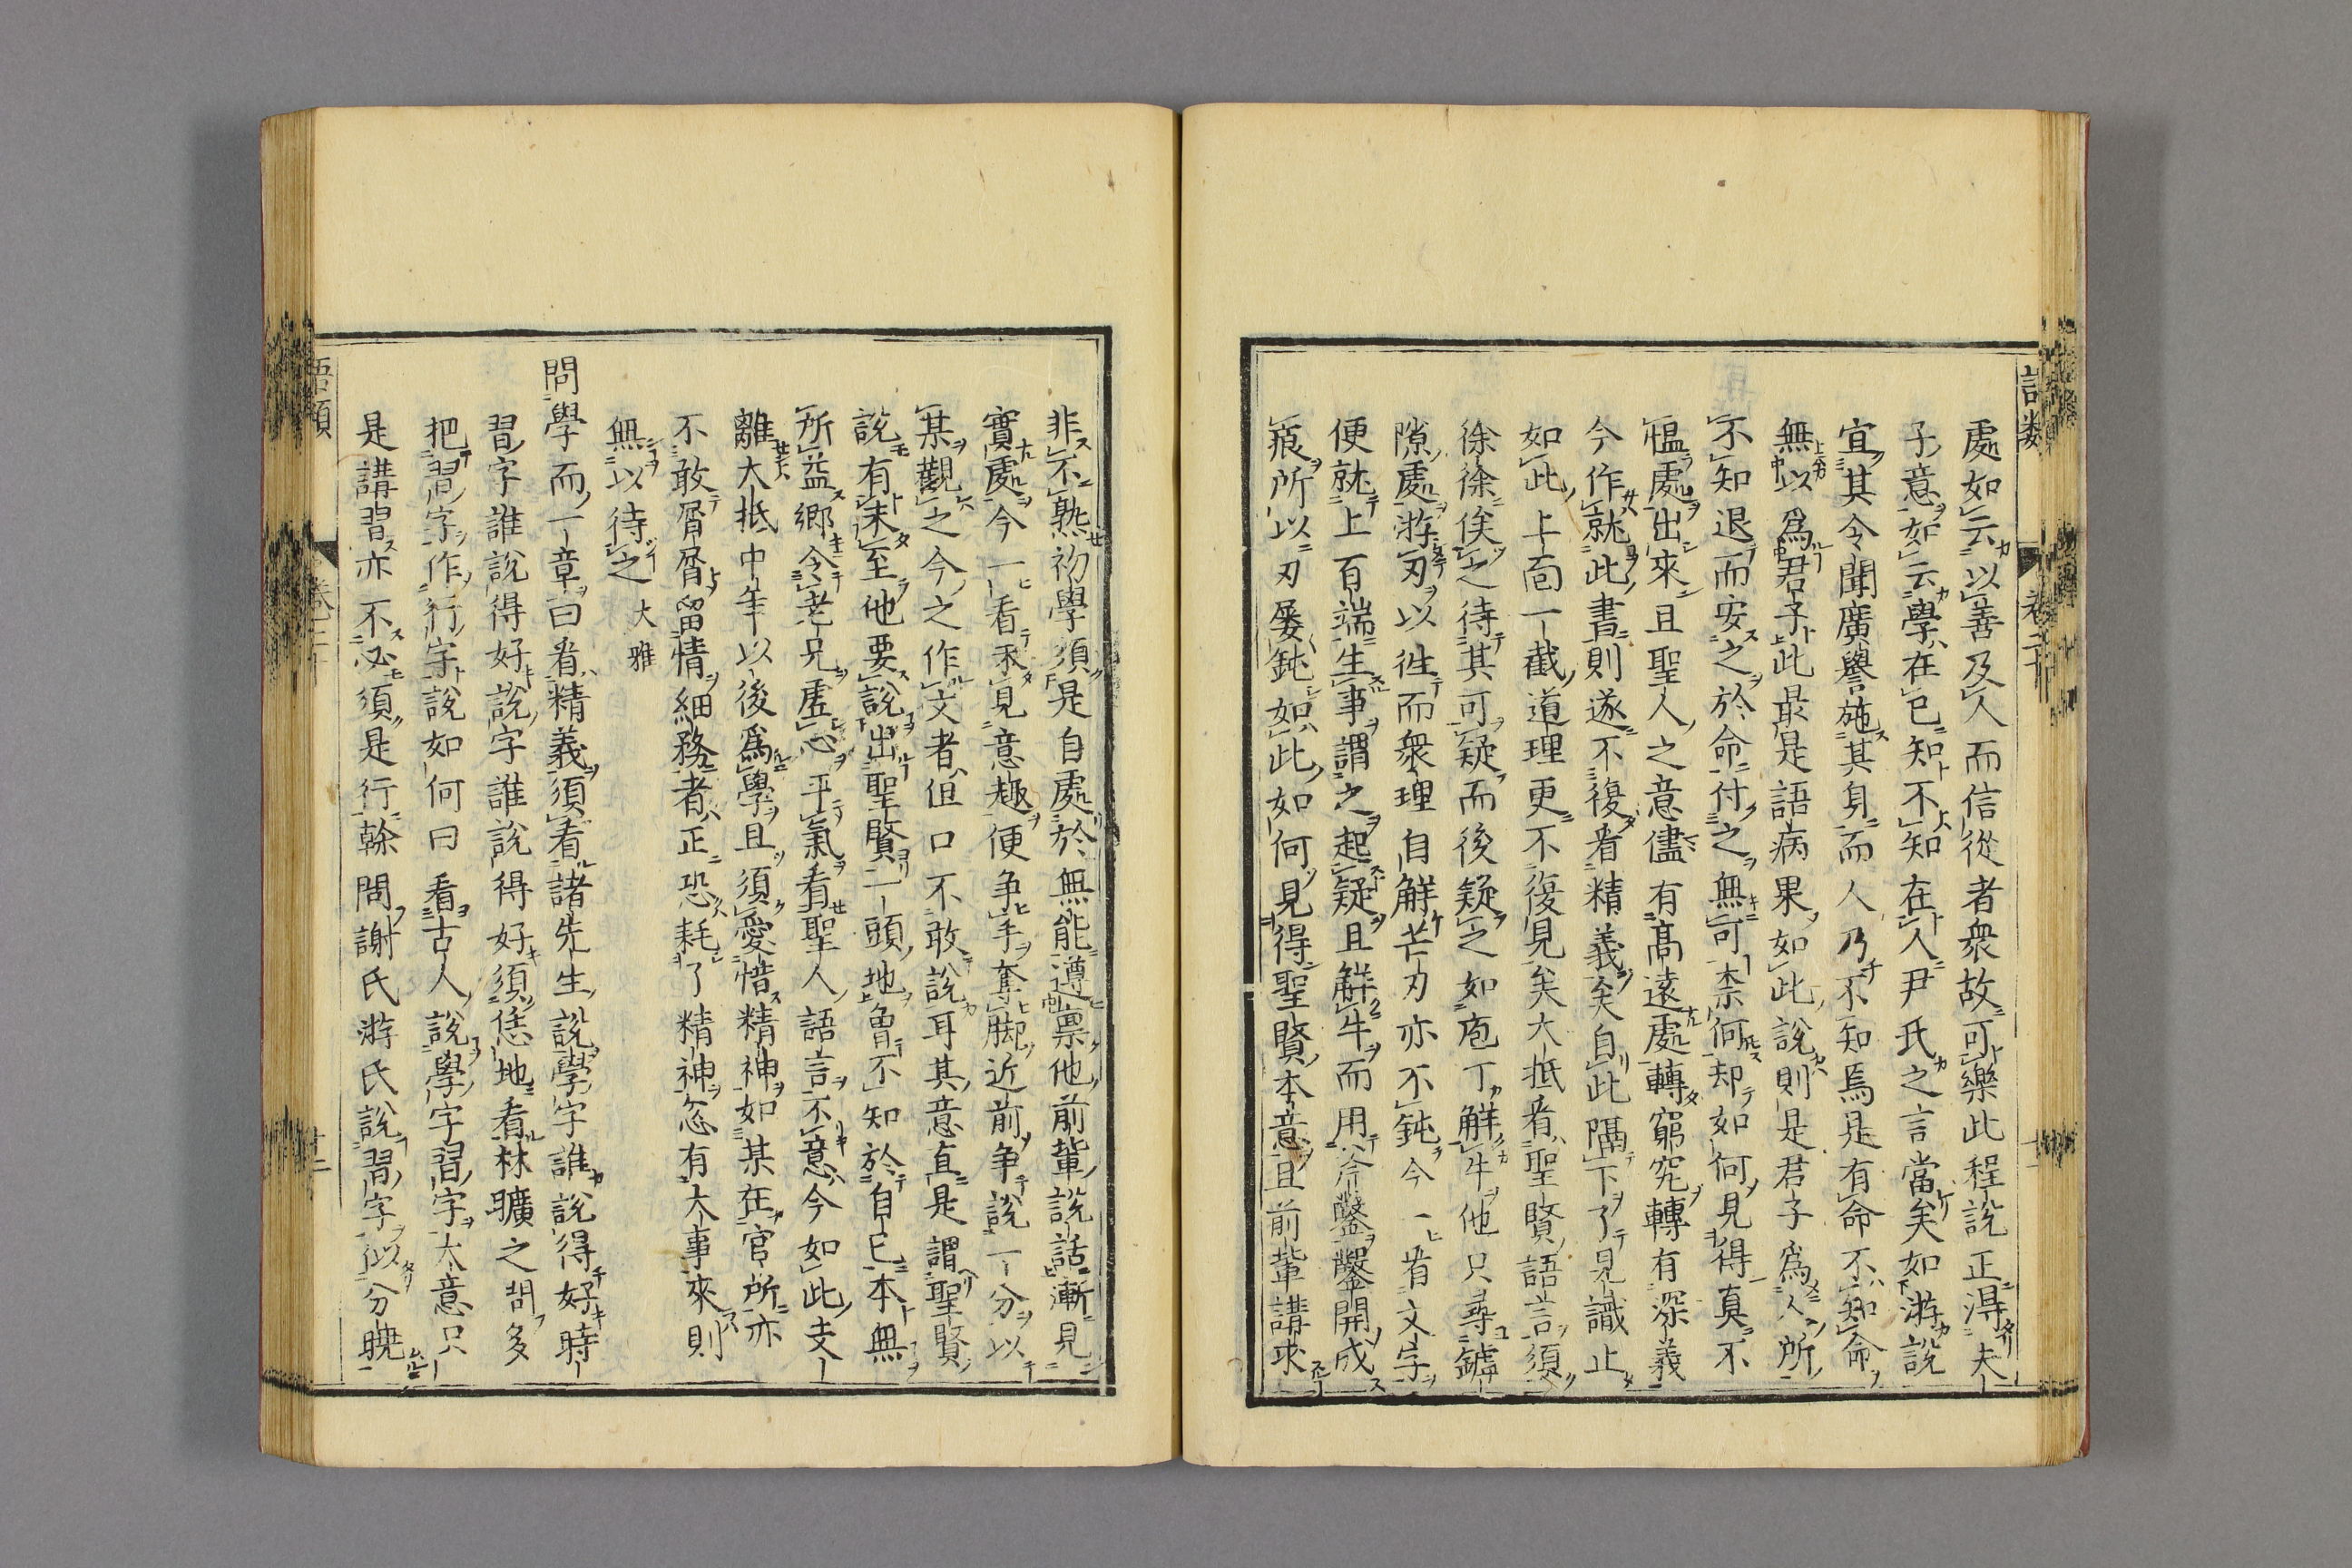 處如云以善及人而信從者衆故可樂此程說正得夫
子意如云學在己知不知在人尹氏之言當矣如游說
宜其令聞廣譽施其身而人乃不知焉是有命不知命
無以爲君子此最是語病果如此說則是君子爲人所
不知退而安之於命付之無可柰何却如何見得真不
慍處出來且聖人之意儘有高遠處轉窮究轉有深義
今作就此書則遂不復看精義矣自此隔下了見識止
如此上面一截道理更不復見矣大抵看聖賢語言須
徐徐俟之待其可疑而後疑之如庖丁解牛他只尋罅
隙處游刃以徃而衆理自解芒刃亦不鈍今一看文字
便就上百端生事謂之起疑且解牛而用斧鑿鑿開成
痕所以刃屡鈍如此如何見得聖賢本意且前輩講求
非不熟初學須是自處於無能遵禀他前輩說話漸見
實處今一看未見意趣便争手奪脚近前争說一分以
某觀之今之作文者但口不敢說耳其意直是謂聖賢
說有未至他要說出聖賢一頭地曽不知於自己本無
所益郷令老兄虛心平氣看聖人語言不意今如此支
離大抵中年以後爲學且須愛惜精神如某在官所亦
不敢屑屑留情細務者正恐耗了精神忽有大事來則
無以待之 大雅
問學而一章曰看精義須看諸先生說學字誰說得好時
習字誰說得好說字誰說得好須恁地看林曠之問多
把習字作行字說如何曰看古人說學字習字大意只
是講習亦不必須是行榦問謝氏游氏說習字似分曉